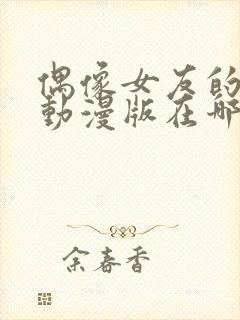 偶像女友的
動漫版在哪
余春香